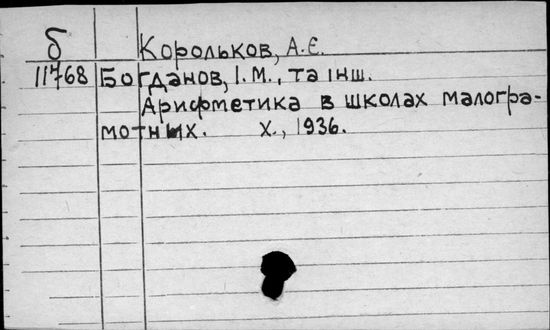 б Корольков, А.Є.
11768 Богданов, І.М., та інш.
Арифметика в школах малогра-
мотных. Х., 1936.